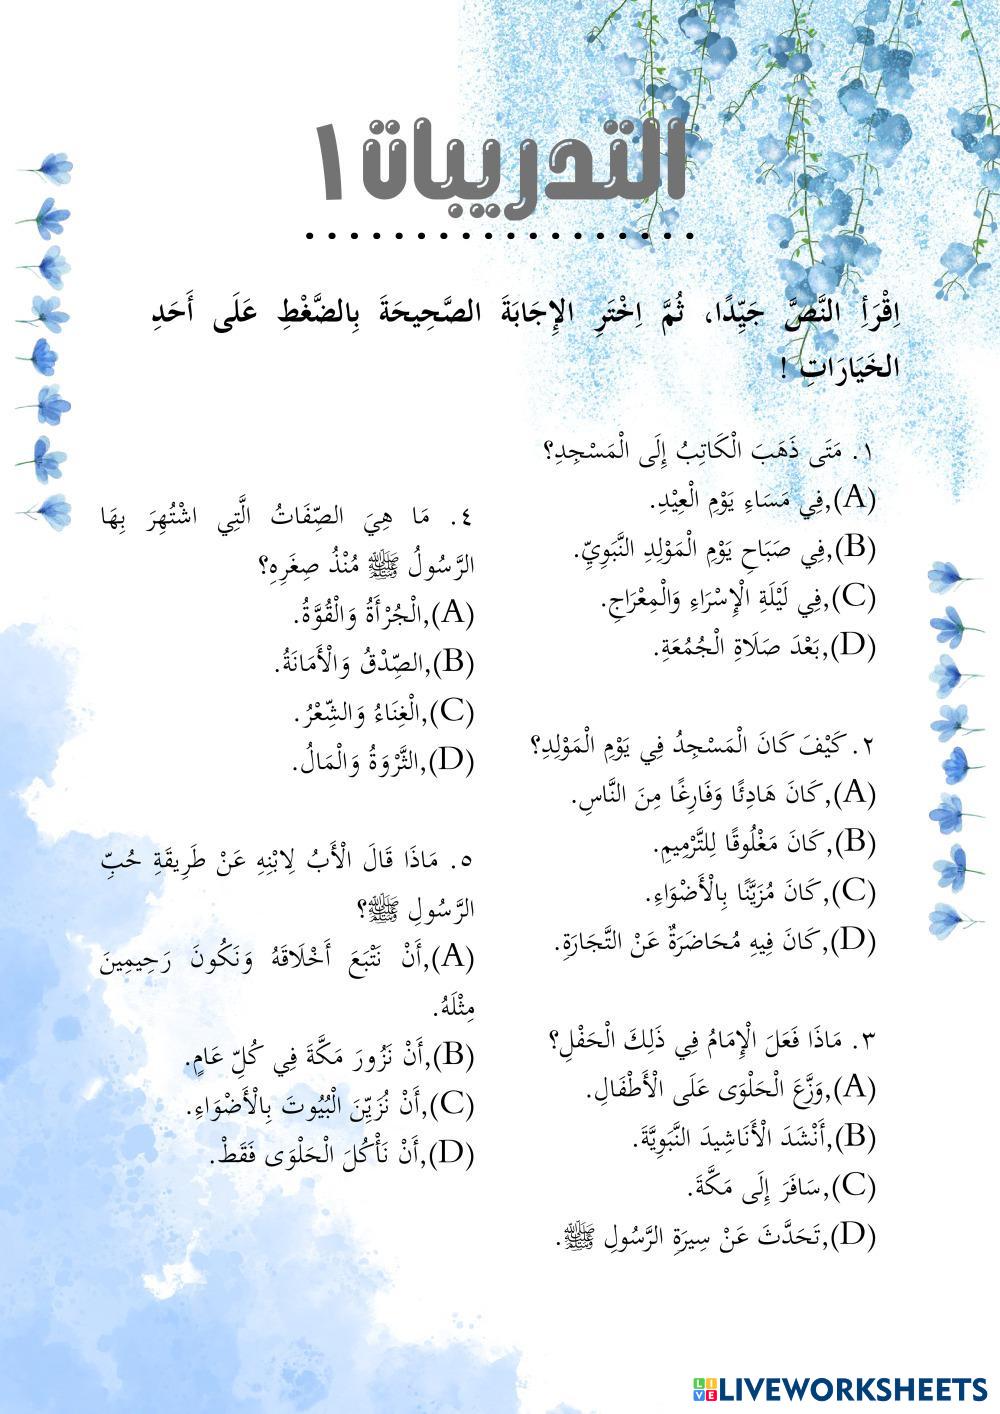 التدريبات ١
اِقْرَأِ النَّصَّ جَيِّدًا، ثُمَّ اِخْتَرِ الإِجَابَةَ الصَّحِيحَةَ بِالضَّغْطِ عَلَى أَحَدِ
الخَيَارَاتِ !
١. مَتَى ذَهَبَ الْكَاتِبُ إِلَى الْمَسْجِدِ؟
(A),فِي مَسَاءِ يَوْمِ الْعِيْدِ.
(B),فِي صَبَاحِ يَوْمِ الْمَوْلِدِ النَّبَوِيِّ.
(C),فِي لَيْلَةِ الْإِسْرَاءِ وَالْمِعْرَاجِ.
(D),بَعْدَ صَلَاةِ الْجُمُعَةِ.
٢. كَيْفَ كَانَ الْمَسْجِدُ فِي يَوْمِ الْمَوْلِدِ؟
(A),كَانَ هَادِئًا وَفَارِغًا مِنَ النَّاسِ.
(B),كَانَ مَغْلُوقًا لِلتَّرْمِيمِ.
(C),كَانَ مُزَيَّنًا بِالْأَضْوَاءِ.
(D),كَانَ فِيهِ مُحَاضَرَةٌ عَنْ التَّجَارَةِ.
٣. مَاذَا فَعَلَ الْإِمَامُ فِي ذَلِكَ الْحَفْلِ؟
(A),وَزَّعَ الْحَلْوَى عَلَى الْأَطْفَالِ.
(B),أَنْشَدَ الْأَنَاشِيدَ النَّبَوِيَّةَ.
(C),سَافَرَ إِلَى مَكَّةَ.
(D),تَحَدَّثَ عَنْ سِيرَةِ الرَّسُولِ ﷺ.
٤. مَا هِيَ الصِّفَاتُ الَّتِي اشْتُهِرَ بِهَا
الرَّسُولُ ﷺ مُنْذُ صِغَرِهِ؟
(A),الْجُرْأَةُ وَالْقُوَّةُ.
(B),الصِّدْقُ وَالْأَمَانَةُ.
(C),الْغِنَاءُ وَالشِّعْرُ.
(D),الثَّرْوَةُ وَالْمَالُ.
٥. مَاذَا قَالَ الْأَبُ لِابْنِهِ عَنْ طَرِيقَةِ حُبِّ
الرَّسُولِ ﷺ؟
(A),أَنْ نَتْبَعَ أَخْلَاقَهُ وَنَكُونَ رَحِيمِينَ
مِثْلَهُ.
(B),أَنْ نَزُورَ مَكَّةَ فِي كُلِّ عَامٍ.
(C),أَنْ نُزَيِّنَ الْبُيُوتَ بِالْأَضْوَاءِ.
(D),أَنْ نَأْكُلَ الْحَلْوَى فَقَطْ.
LIVE LIVEWORKSHEETS